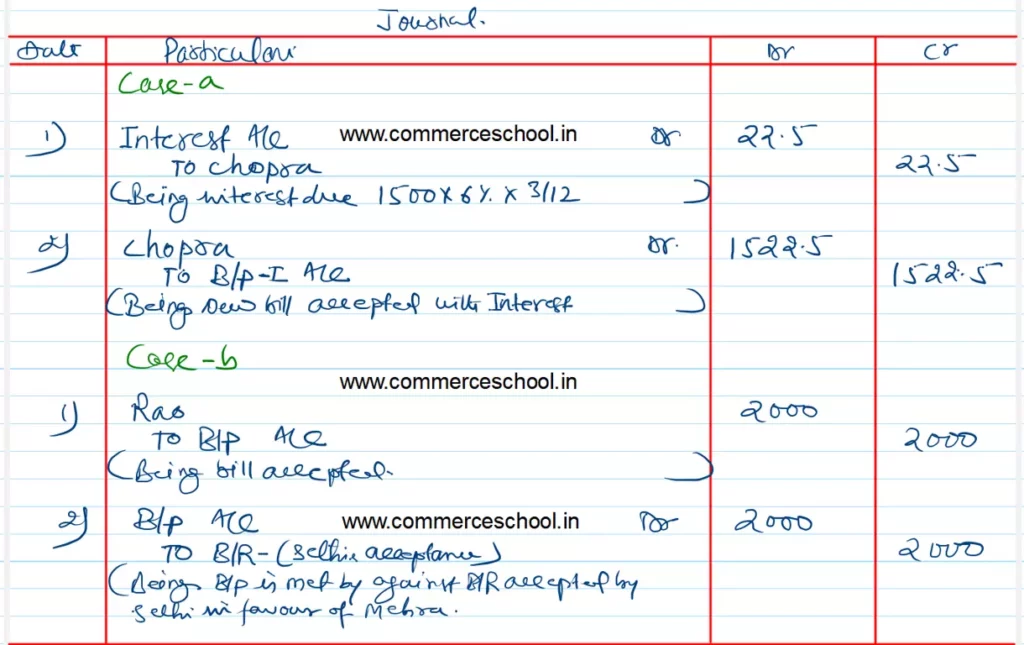 Journal.
Date Particulars Dr Cr
Case-a
1) Interest A/c www.commerceschool.in Dr 22.5
To Chopra 22.5
(Being interest due 1500 x 6% x 3/12)
2) Chopra Dr. 1522.5
To B/P-I A/c 1522.5
(Being new bill accepted with Interest)
Case-b
www.commerceschool.in
1) Rao 2000
To B/P A/c 2000
(Being bill accepted.)
2) B/p A/c www.commerceschool.in Dr 2000
To B/R-(Sethi's acceptance) 2000
(Being B/P is met by against B/R accepted by
Sethi in favour of Mehra.